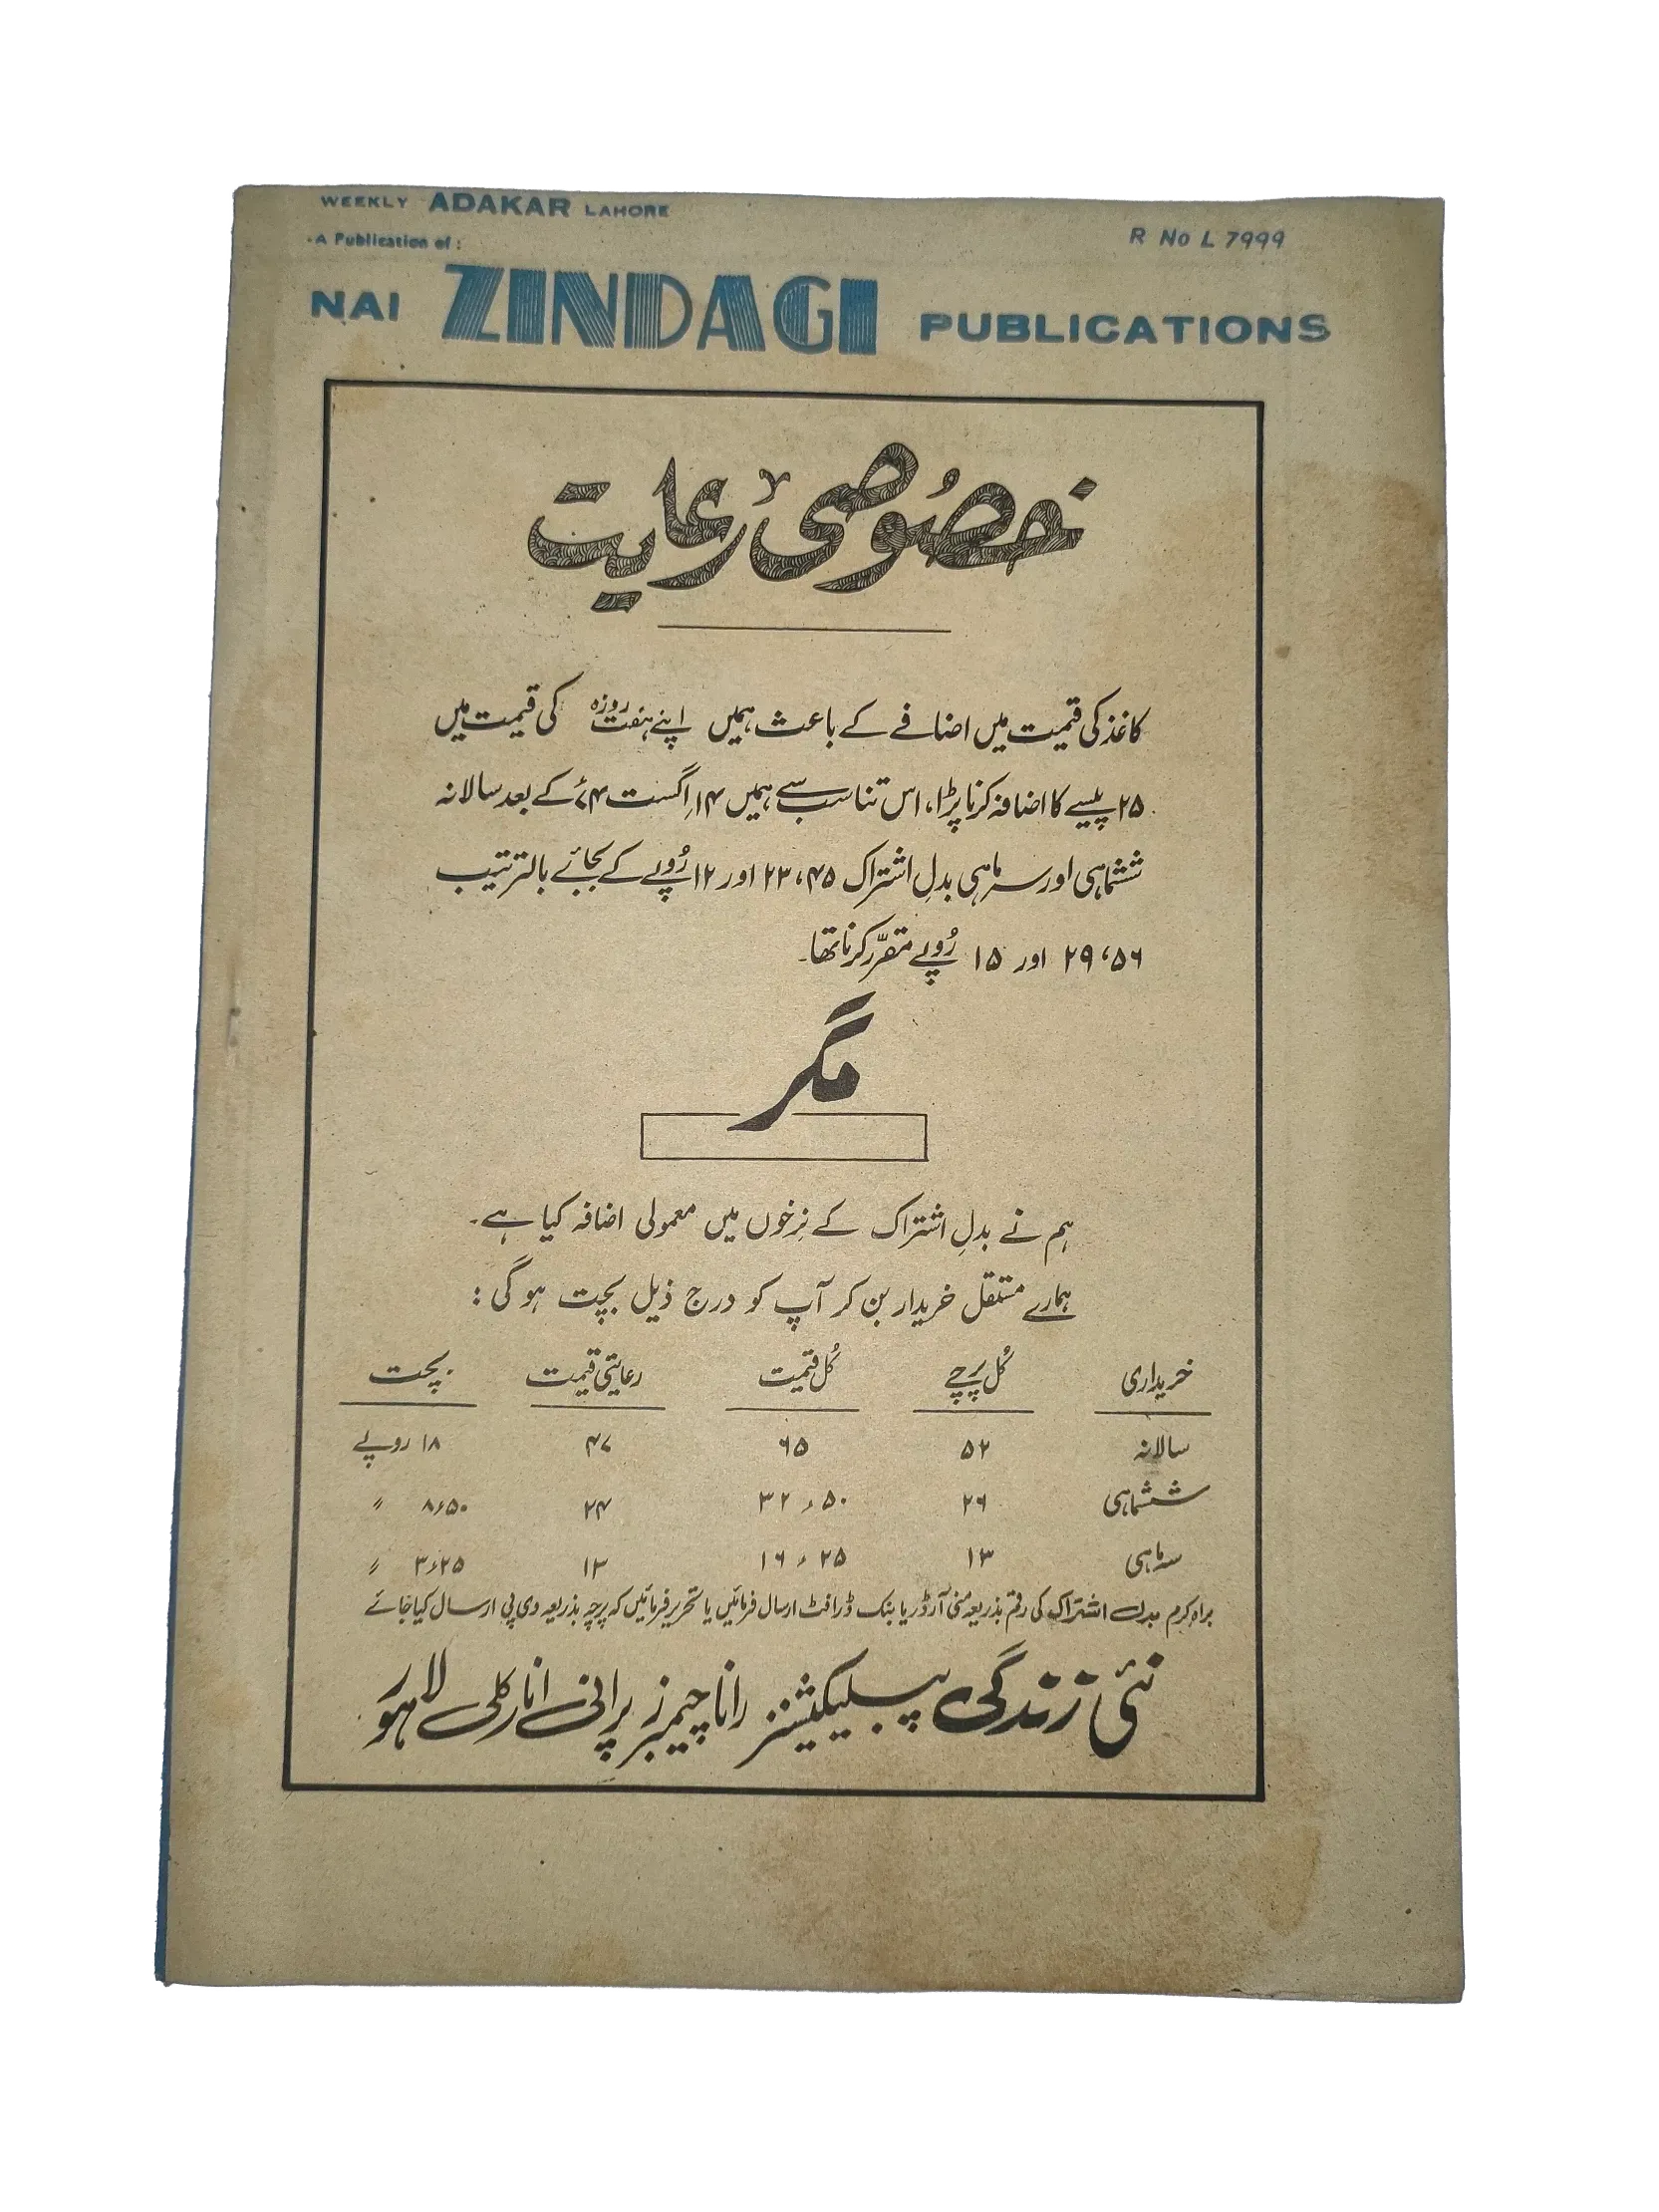 WEEKLY ADAKAR LAHORE
R No L 7999
A Publication of :
NAI ZINDAGI PUBLICATIONS
خصُوصی رعایت
کاغذ کی قیمت میں اضافے کے باعث ہمیں اپنے ہفت روزہ کی قیمت میں
۲۵ پیسے کا اضافہ کرنا پڑا، اس تناسب سے ہمیں ۱۴ اگست ۷۴ء کے بعد سالانہ
ششماہی اور سہ ماہی بدلِ اشتراک ۴۵، ۲۳ اور ۱۲ رُوپے کے بجائے بالترتیب
۵۶، ۲۹ اور ۱۵ رُوپے مقرّر کرنا تھا۔
مگر
ہم نے بدلِ اشتراک کے نرخوں میں معمولی اضافہ کیا ہے۔
ہمارے مستقل خریدار بن کر آپ کو درج ذیل بچت ہو گی :
خریداری کُل پرچے کُل قیمت رعایتی قیمت بچت
سالانہ ۵۲ ۶۵ ۴۷ ۱۸ روپے
ششماہی ۲۶ ۳۲٫۵۰ ۲۴ ۸٫۵۰ 〃
سہ ماہی ۱۳ ۱۶٫۲۵ ۱۳ ۳٫۲۵ 〃
براہِ کرم بدل اشتراک کی رقم بذریعہ منی آرڈر یا بنک ڈرافٹ ارسال فرمائیں یا تحریر فرمائیں کہ پرچہ بذریعہ وی پی ارسال کیا جائے
نئی زندگی پبلیکیشنز رانا چیمبرز پرانی انارکلی لاہور